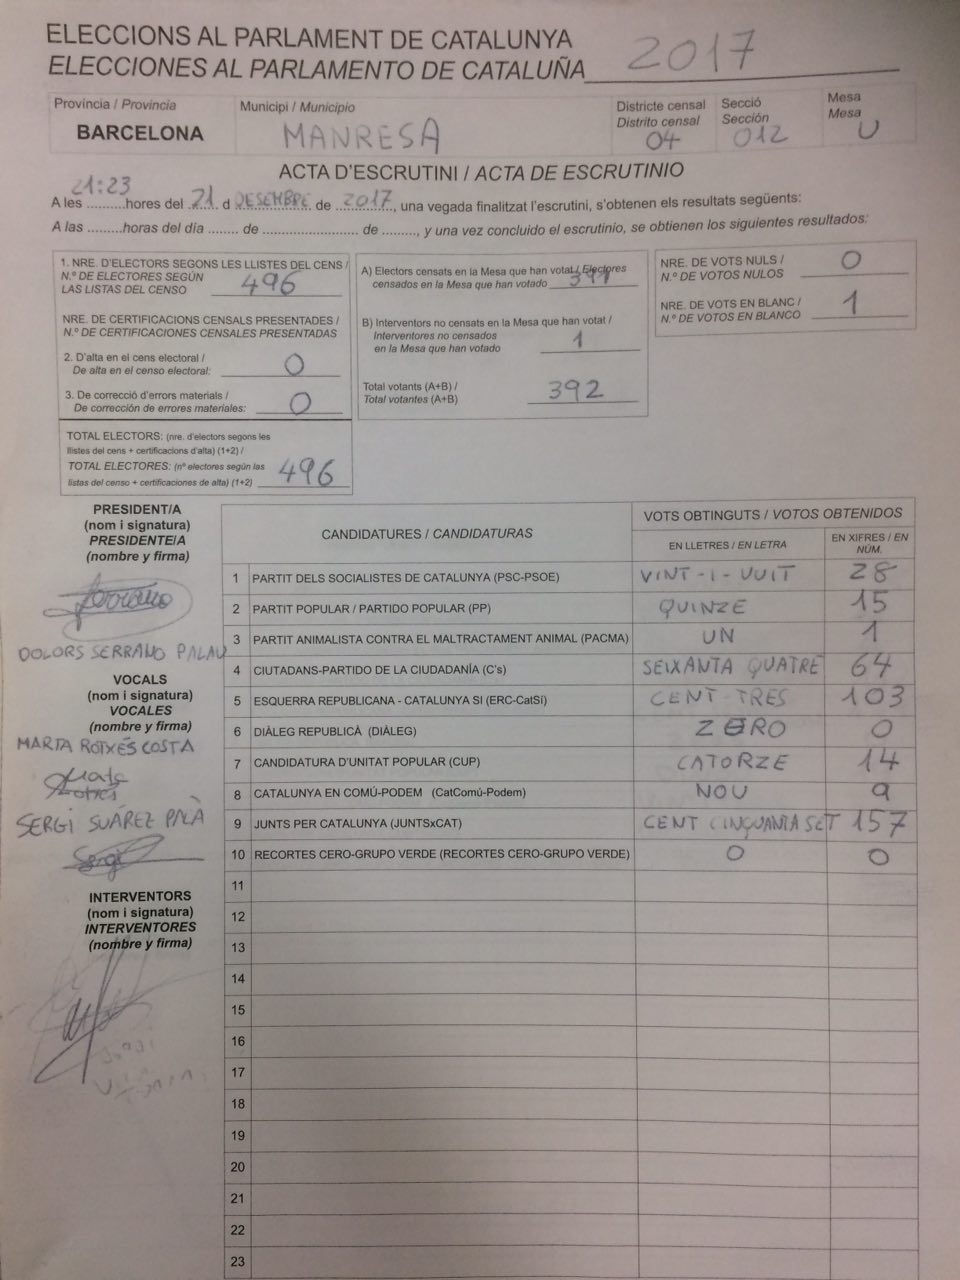 ELECCIONS AL PARLAMENT DE CATALUNYA
ELECCIONES AL PARLAMENTO DE CATALUÑA 2017
Província / Provincia
BARCELONA
Municipi / Municipio
MANRESA
Districte censal
Distrito censal
04
Secció
Sección
012
Mesa
Mesa
U
ACTA D'ESCRUTINI / ACTA DE ESCRUTINIO
21:23
A les ..........hores del 21 d DESEMBRE de 2017, una vegada finalitzat l'escrutini, s'obtenen els resultats següents:
A las .........horas del día ........ de ......................... de ........., y una vez concluido el escrutinio, se obtienen los siguientes resultados:
1. NRE. D'ELECTORS SEGONS LES LLISTES DEL CENS /
N.º DE ELECTORES SEGÚN
LAS LISTAS DEL CENSO 496
NRE. DE CERTIFICACIONS CENSALS PRESENTADES /
N.º DE CERTIFICACIONES CENSALES PRESENTADAS
2. D'alta en el cens electoral /
De alta en el censo electoral: 0
3. De correcció d'errors materials /
De corrección de errores materiales: 0
TOTAL ELECTORS: (nre. d'electors segons les
llistes del cens + certificacions d'alta) (1+2) /
TOTAL ELECTORES: (nº electores según las
listas del censo + certificaciones de alta) (1+2) 496
A) Electors censats en la Mesa que han votat / Electores
censados en la Mesa que han votado 391
B) Interventors no censats en la Mesa que han votat /
Interventores no censados
en la Mesa que han votado 1
Total votants (A+B) /
Total votantes (A+B) 392
NRE. DE VOTS NULS /
N.º DE VOTOS NULOS 0
NRE. DE VOTS EN BLANC /
N.º DE VOTOS EN BLANCO 1
PRESIDENT/A
(nom i signatura)
PRESIDENTE/A
(nombre y firma)
Serrano
DOLORS SERRANO PALAU
VOCALS
(nom i signatura)
VOCALES
(nombre y firma)
MARTA ROTXÉS COSTA
Marta
Rotxés
SERGI SUÁREZ PALÀ
Sergi
INTERVENTORS
(nom i signatura)
INTERVENTORES
(nombre y firma)
CANDIDATURES / CANDIDATURAS
VOTS OBTINGUTS / VOTOS OBTENIDOS
EN LLETRES / EN LETRA
EN XIFRES / EN NÚM.
1 PARTIT DELS SOCIALISTES DE CATALUNYA (PSC-PSOE) VINT-I-VUIT 28
2 PARTIT POPULAR / PARTIDO POPULAR (PP) QUINZE 15
3 PARTIT ANIMALISTA CONTRA EL MALTRACTAMENT ANIMAL (PACMA) UN 1
4 CIUTADANS-PARTIDO DE LA CIUDADANÍA (C's) SEIXANTA QUATRE 64
5 ESQUERRA REPUBLICANA - CATALUNYA SI (ERC-CatSí) CENT TRES 103
6 DIÀLEG REPUBLICÀ (DIÀLEG) ZERO 0
7 CANDIDATURA D'UNITAT POPULAR (CUP) CATORZE 14
8 CATALUNYA EN COMÚ-PODEM (CatComú-Podem) NOU 9
9 JUNTS PER CATALUNYA (JUNTSxCAT) CENT CINQUANTA SET 157
10 RECORTES CERO-GRUPO VERDE (RECORTES CERO-GRUPO VERDE) 0 0
11
12
13
14
15
16
17
18
19
20
21
22
23